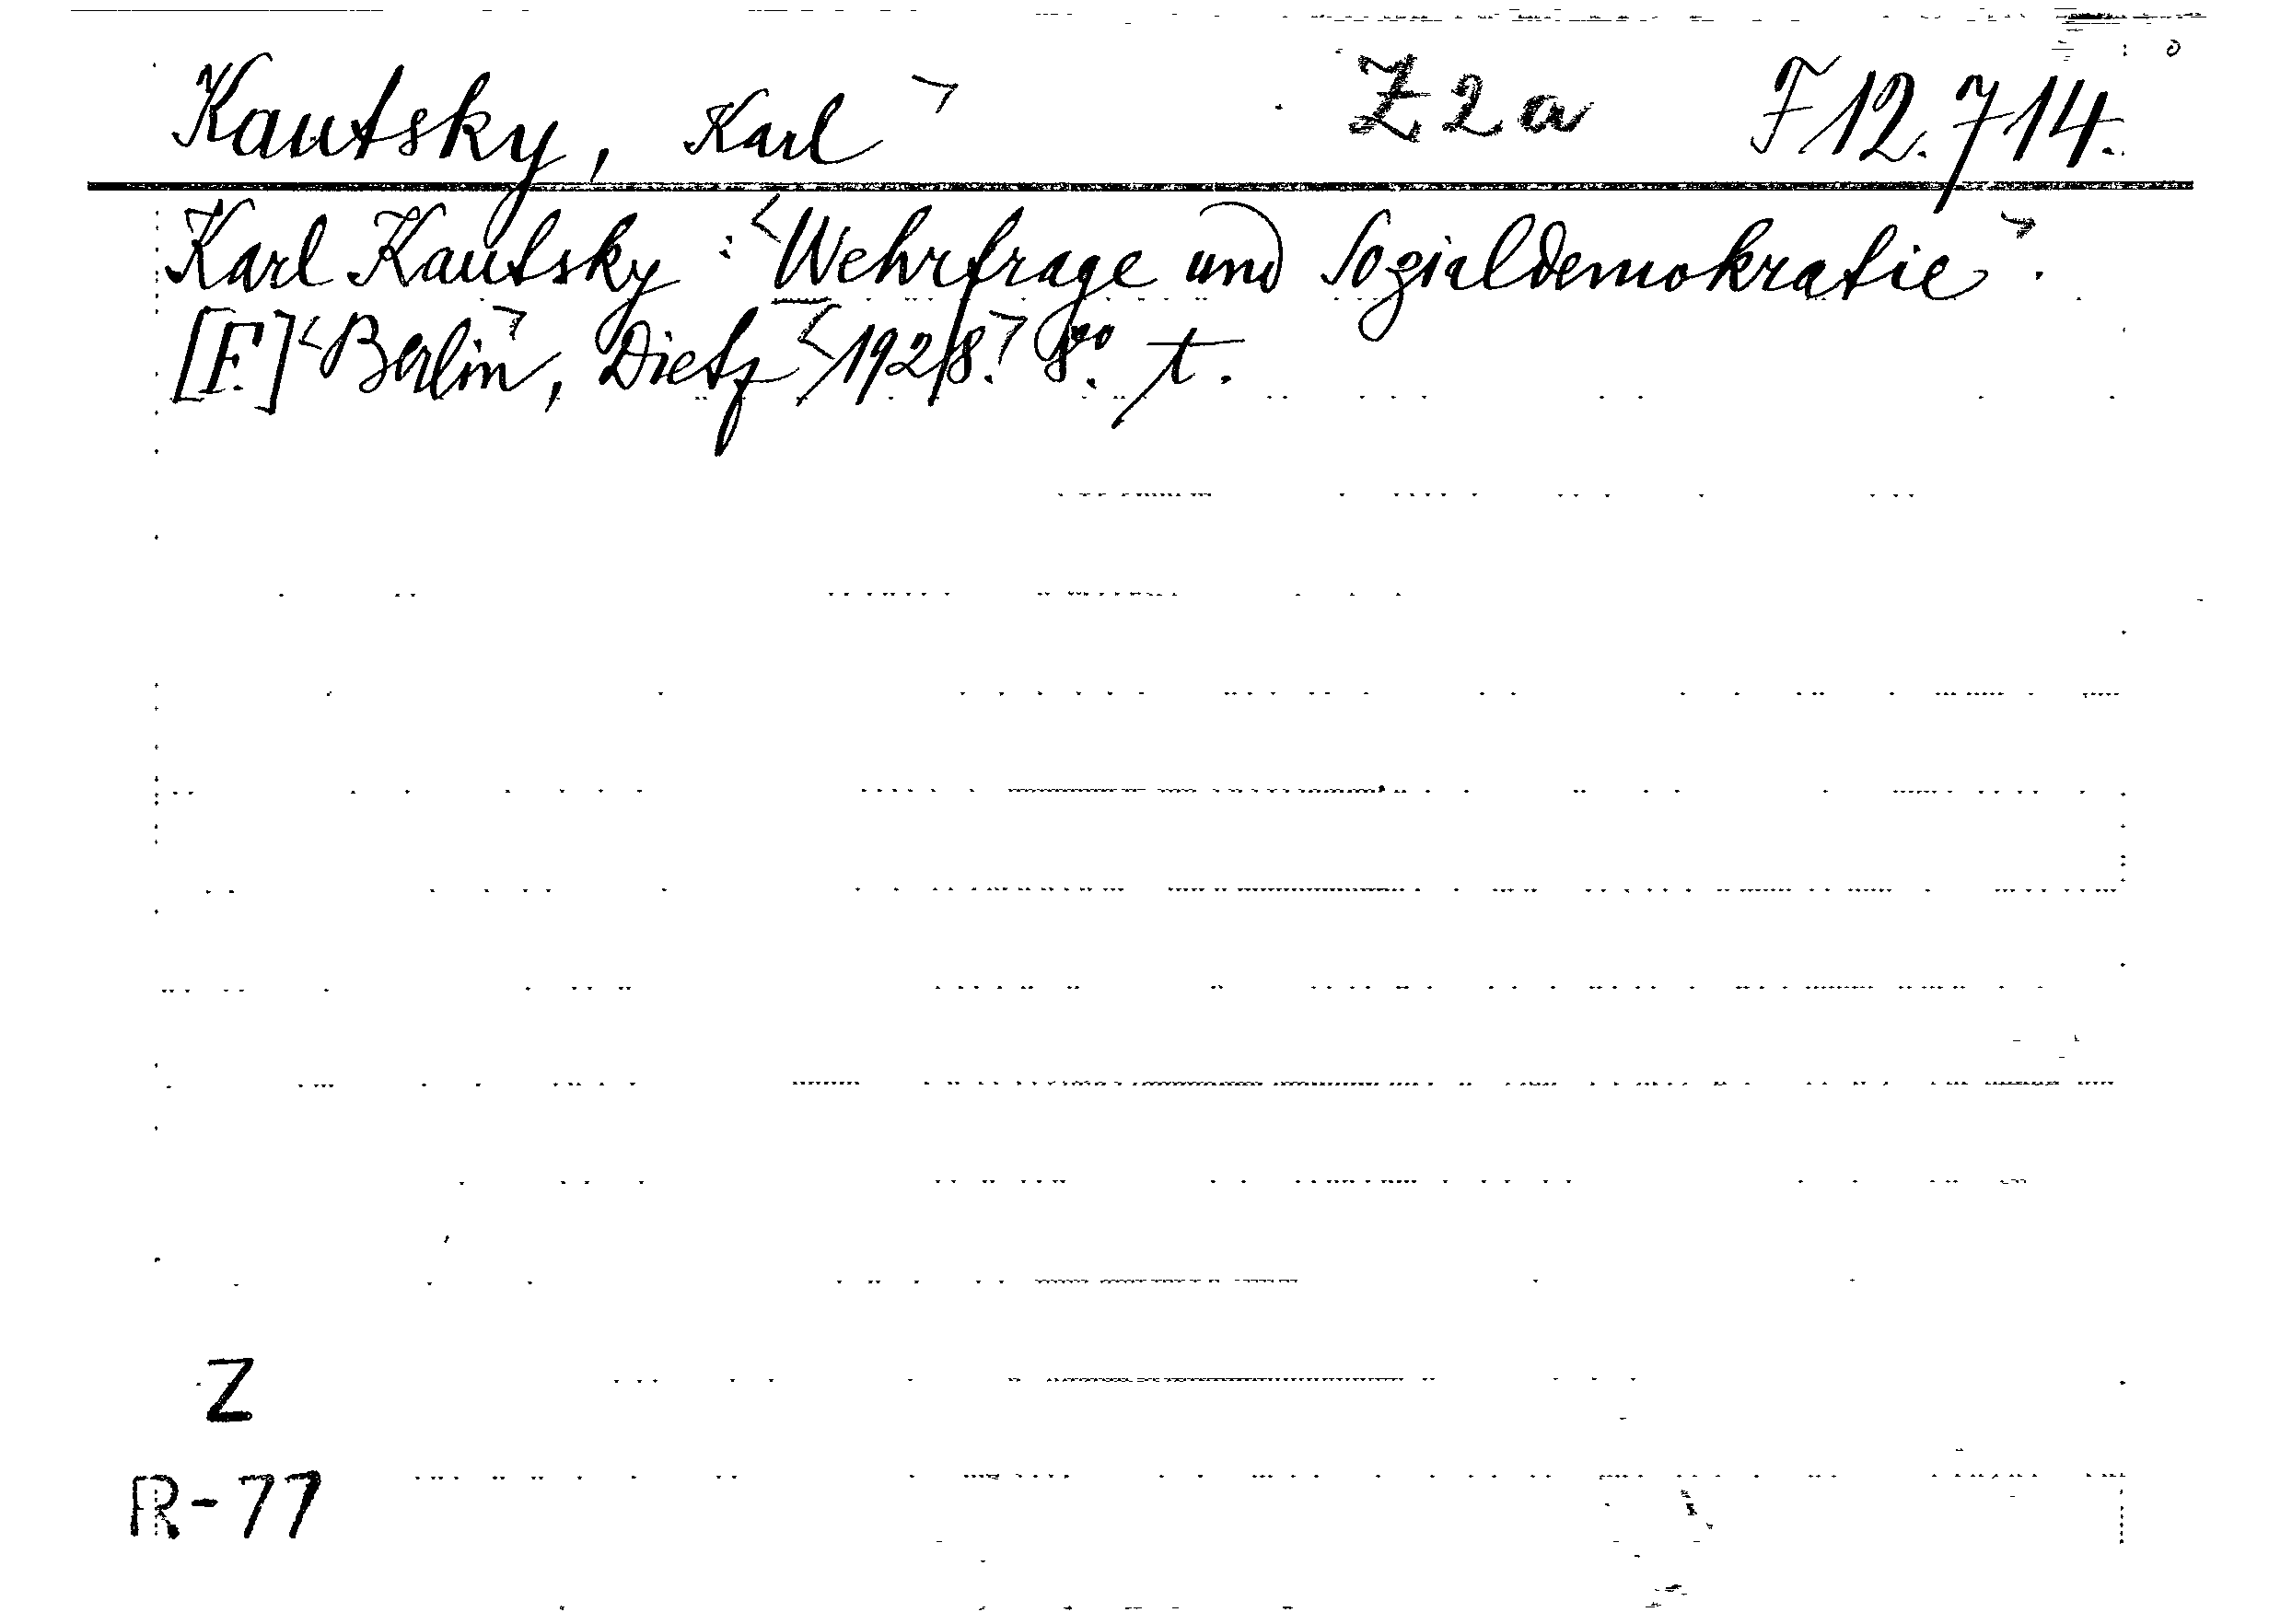 Kautsky, Karl ㄱ Z2a F12.714.
Karl Kautsky : <Wehrfrage und Sozialdemokratie>.
[F.] <Berlin>, Dietz <1928.> 8° t.
Z
R-77